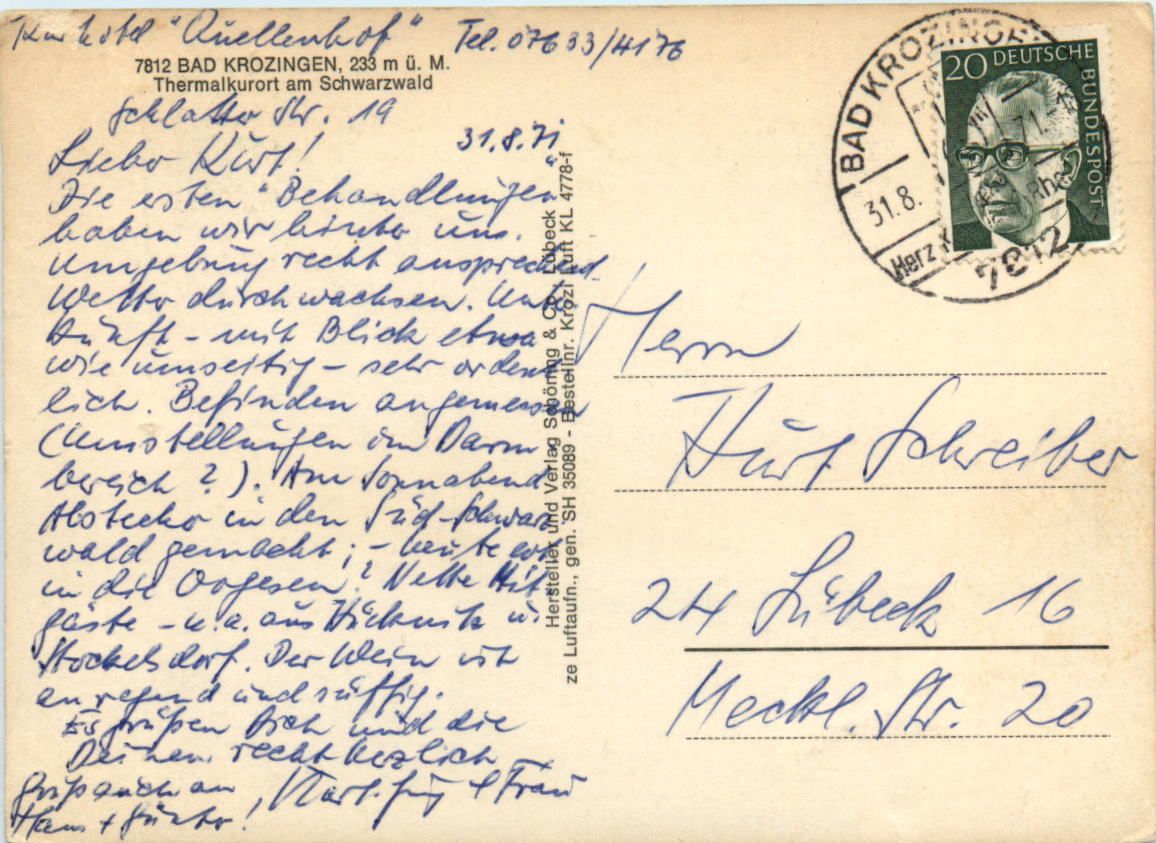 Kurhotel "Quellenhof" Tel. 07633/4176
7812 BAD KROZINGEN, 233 m ü. M.
Thermalkurort am Schwarzwald
Schlatter Str. 19
31.8.71
Lieber Kurt!
Die ersten "Behandlungen"
haben wir hinter uns.
Umgebung recht ansprechend.
Wetter durchwachsen. Unter
kunft - mit Blick etwa
wie umseitig - sehr ordent
lich. Befinden angemessen
(Umstellungen im Darm
bereich?). Am Sonnabend
Abstecher in den Süd-Schwarz
wald gemacht; - heute evtl.
in die Vogesen? Nette Mit-
gäste - u.a. aus Kücknitz u.
Stockelsdorf. Der Wein ist
anregend und süffig.
Es grüßen Dich und die
Deinen recht herzlich
Gruß auch an
Hans + Günter!
& Frau
Hersteller und Verlag Schöning & Co., Lübeck
ze Luftaufn., gen. SH 35089 - Bestellnr. Krozi Luft KL 4778-f
BAD KROZINGEN
31.8.
71
Herz
7812
20 DEUTSCHE
BUNDESPOST
Herrn
Kurt Schreiber
24 Lübeck 16
Meckl. Str. 20